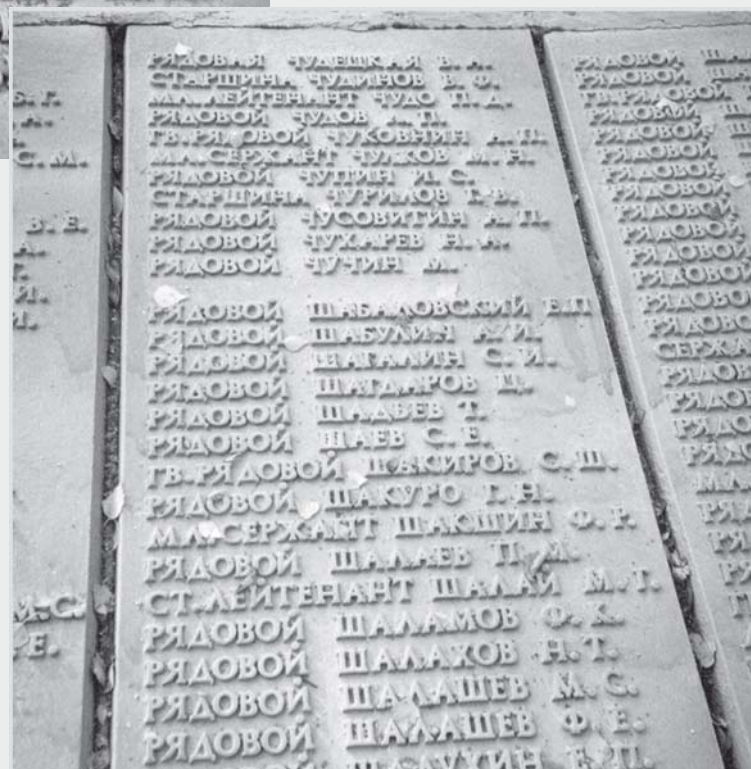 Б. Г.
А.
С. М.
В. Е.
А.
Г.
И.
И.
М. С.
Е.
РЯДОВАЯ ЧУДЕЦКАЯ В. А.
СТАРШИНА ЧУДИНОВ В. Ф.
МЛ. ЛЕЙТЕНАНТ ЧУДО П. Д.
РЯДОВОЙ ЧУДОВ А. П.
ГВ. РЯДОВОЙ ЧУКОВНИН А. П.
МЛ. СЕРЖАНТ ЧУЛКОВ М. Н.
РЯДОВОЙ ЧУПИН И. С.
СТАРШИНА ЧУРИЛОВ Г. В.
РЯДОВОЙ ЧУСОВИТИН А. П.
РЯДОВОЙ ЧУХАРЕВ Н. А.
РЯДОВОЙ ЧУЧИН М.
РЯДОВОЙ ШАБАЛОВСКИЙ Е. П
РЯДОВОЙ ШАБУЛИН А. И.
РЯДОВОЙ ШАГАЛИН С. И.
РЯДОВОЙ ШАГДАРОВ Д.
РЯДОВОЙ ШАДЬЕВ Т.
РЯДОВОЙ ШАЕВ С. Е.
ГВ. РЯДОВОЙ ШАКИРОВ С. Ш.
РЯДОВОЙ ШАКУРО Г. Н.
МЛ. СЕРЖАНТ ШАКШИН Ф. Г.
РЯДОВОЙ ШАЛАЕВ П. И.
СТ. ЛЕЙТЕНАНТ ШАЛАЙ М. Т.
РЯДОВОЙ ШАЛАМОВ Ф. К.
РЯДОВОЙ ШАЛАХОВ Н. Т.
РЯДОВОЙ ШАЛАШЕВ М. С.
РЯДОВОЙ ШАЛАШЕВ Ф. Е.
ШАЛУХИН Е. П.
РЯДОВОЙ ША
РЯДОВОЙ ША
ГВ. РЯДОВОЙ
РЯДОВОЙ
РЯДОВОЙ
РЯДОВОЙ
РЯДОВОЙ
РЯДОВОЙ
РЯДОВОЙ
РЯДОВОЙ
РЯДОВОЙ
РЯДОВОЙ
РЯДОВО
РЯДОВО
СЕРЖА
РЯДОВ
РЯДОВ
РЯДО
РЯДО
МЛ
РЯД
РЯД
РЯ